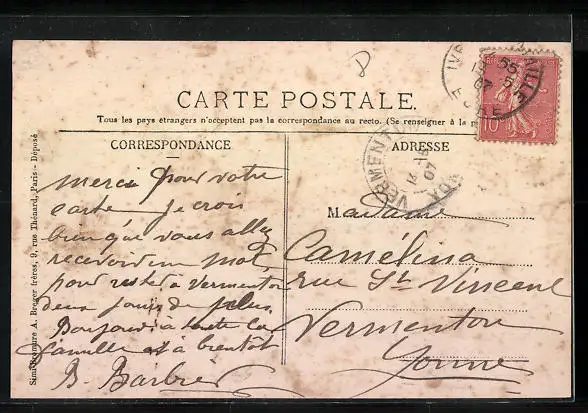 CARTE POSTALE.
Tous les pays étrangers n'acceptent pas la correspondance au recto. (Se renseigner à la
CORRESPONDANCE
merci pour votre
carte je crois
bien que vous allez
recevoir un mot
pour rester à Vermenton
deux jours de plus
Bonjour à toute la
famille et à bientôt
B. Barbier
ADRESSE
Madame
Camélina
rue St Vincent
Vermenton
Yonne
Simi-Bromure A. Breger frères, 9, rue Thénard, Paris - Déposé
IVRY LA BATAILLE
EURE
VERMENTON
10